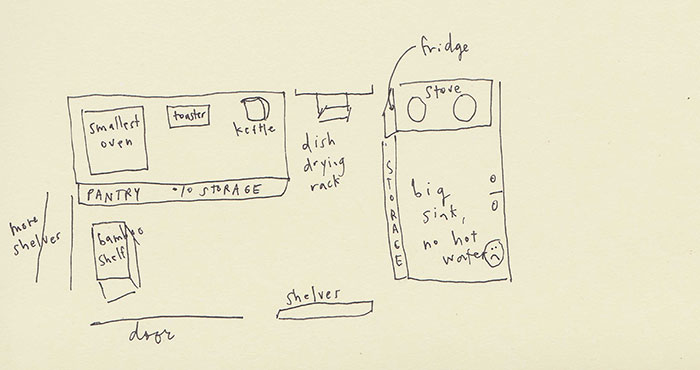 fridge
stove
smallest
oven
toaster
kettle
dish
drying
rack
STORAGE
big
sink,
no hot
water
PANTRY STORAGE
more
shelves
bamboo
shelf
shelves
door